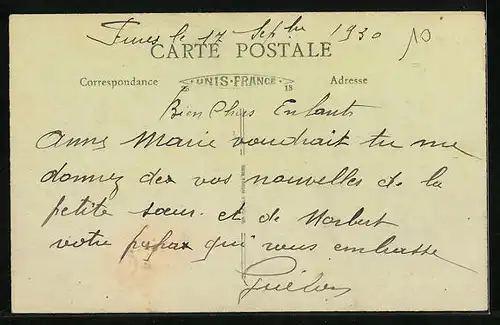 le 17 Sepbre 1930
10
CARTE POSTALE
Correspondance UNIS-FRANCE Adresse
Bien Chers Enfants
Anne Marie voudrait tu me
donnez des vos nouvelles de la
petite sœur et de Norbert
votre papa qui vous embrasse